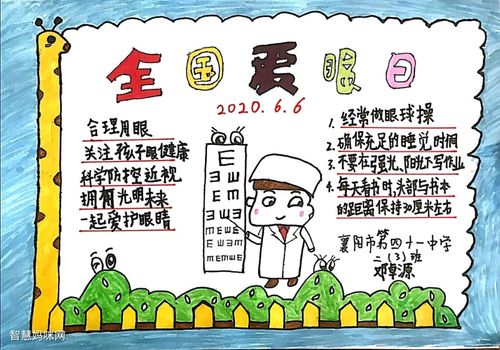 全国爱眼日
2020.6.6
合理用眼
关注孩子眼健康
科学防控近视
拥有光明未来
一起爱护眼睛
1. 经常做眼球操
2. 确保充足的睡觉时间
3. 不要在强光、阳光下写作业
4. 每天看书时,头部与书本
的距离保持30厘米左右
襄阳市第四十一中学
二(3)班
邓卓源
智慧妈咪网